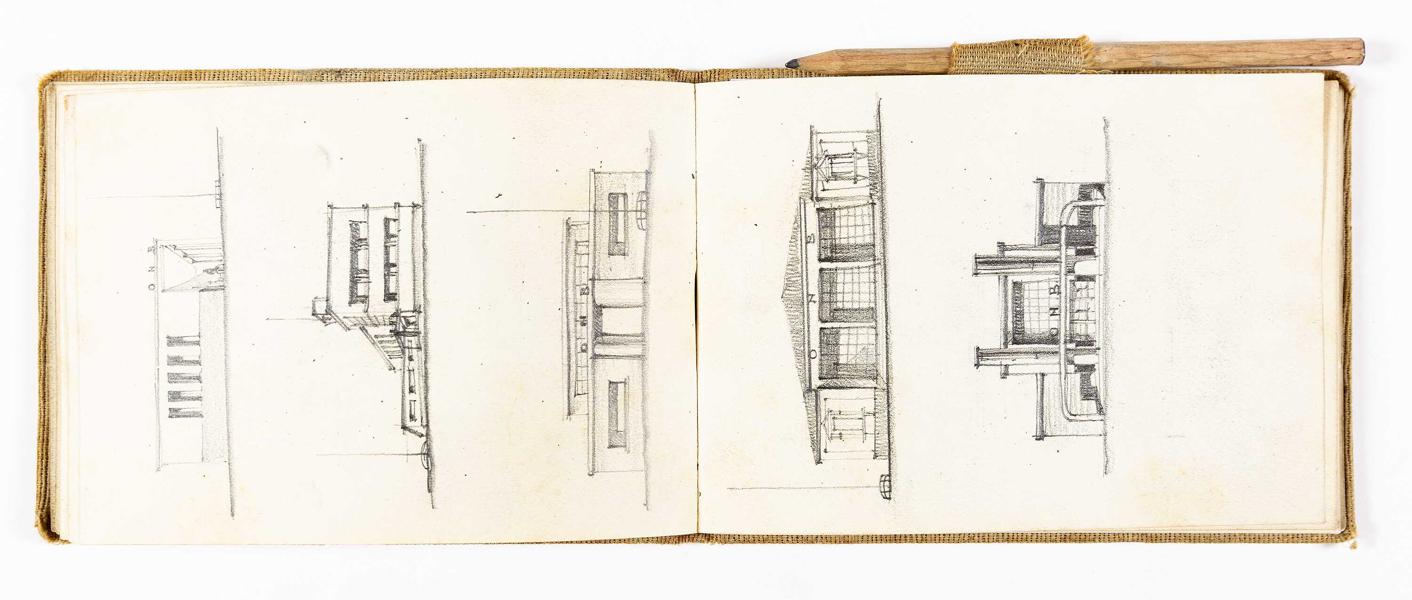 ONB
ONB
ONB
ONB